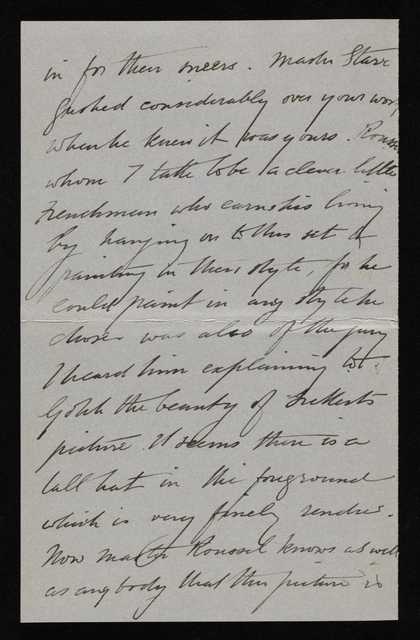 in for their sneers. Master Starr
gushed considerably over your work
when he knew it was yours. Rouss
whom I take to be a clever little
Frenchman who earns his living
by hanging on to this set &
painting in their style, for he
could paint in any style he
chose was also of the jury
I heard him explaining to
Gotch the beauty of Sickerts
picture. It seems there is a
tall hat in the foreground
which is very finely render.
Now master Roussel knows as well
as anybody that this picture is